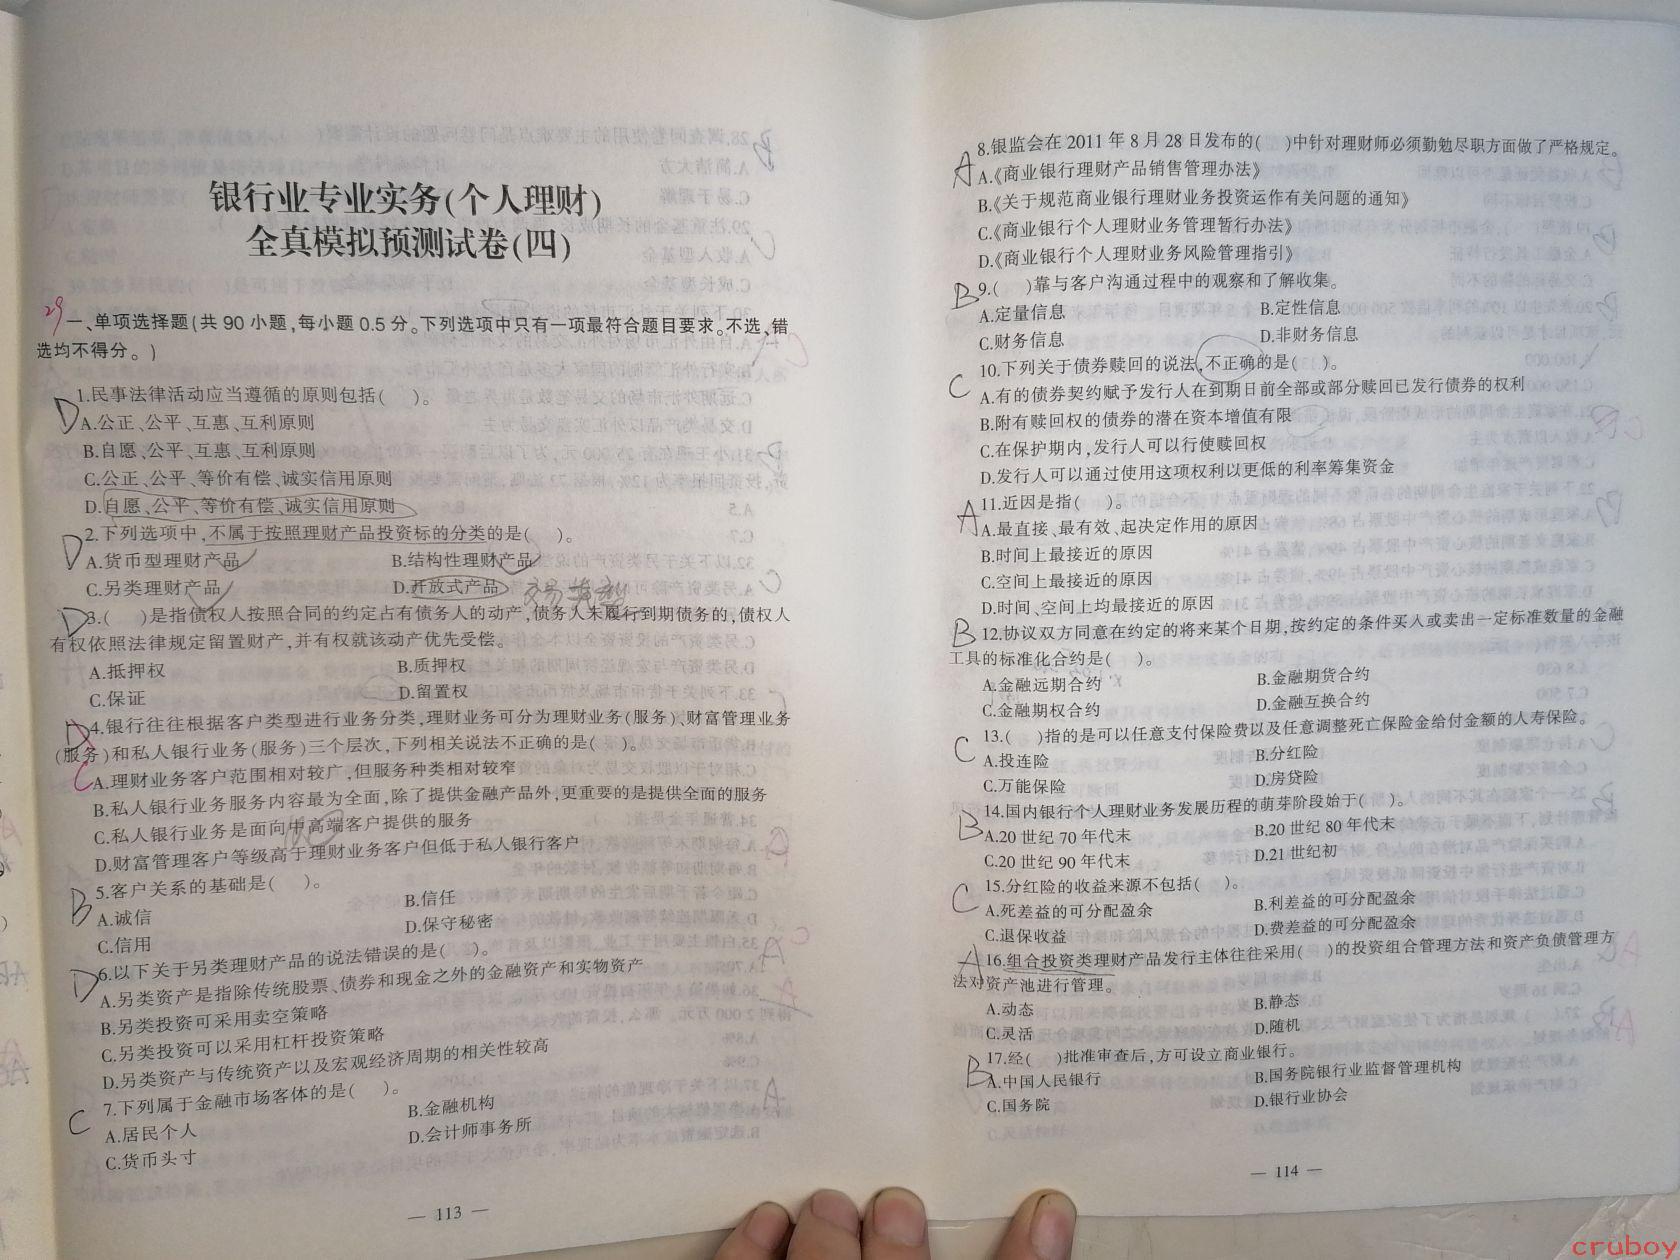 银行业专业实务(个人理财)
全真模拟预测试卷(四)
29
一、单项选择题(共 90 小题,每小题 0.5 分。下列选项中只有一项最符合题目要求。不选、错
选均不得分。)
D 1.民事法律活动应当遵循的原则包括(  )。
A.公正、公平、互惠、互利原则
B.自愿、公平、互惠、互利原则
C.公正、公平、等价有偿、诚实信用原则
D.自愿、公平、等价有偿、诚实信用原则
D 2.下列选项中,不属于按照理财产品投资标的分类的是(  )。
A.货币型理财产品 B.结构性理财产品
C.另类理财产品 D.开放式产品
D 3.(  )是指债权人按照合同的约定占有债务人的动产,债务人未履行到期债务的,债权人
有权依照法律规定留置财产,并有权就该动产优先受偿。
A.抵押权 B.质押权
C.保证 D.留置权
D 4.银行往往根据客户类型进行业务分类,理财业务可分为理财业务(服务)、财富管理业务
(服务)和私人银行业务(服务)三个层次,下列相关说法不正确的是(  )。
C A.理财业务客户范围相对较广,但服务种类相对较窄
B.私人银行业务服务内容最为全面,除了提供金融产品外,更重要的是提供全面的服务
C.私人银行业务是面向中高端客户提供的服务
D.财富管理客户等级高于理财业务客户但低于私人银行客户
B 5.客户关系的基础是(  )。
A.诚信 B.信任
C.信用 D.保守秘密
D 6.以下关于另类理财产品的说法错误的是(  )。
A.另类资产是指除传统股票、债券和现金之外的金融资产和实物资产
B.另类投资可采用卖空策略
C.另类投资可以采用杠杆投资策略
D.另类资产与传统资产以及宏观经济周期的相关性较高
C 7.下列属于金融市场客体的是(  )。
A.居民个人 B.金融机构
C.货币头寸 D.会计师事务所
— 113 —
A 8.银监会在 2011 年 8 月 28 日发布的(  )中针对理财师必须勤勉尽职方面做了严格规定。
A.《商业银行理财产品销售管理办法》
B.《关于规范商业银行理财业务投资运作有关问题的通知》
C.《商业银行个人理财业务管理暂行办法》
D.《商业银行个人理财业务风险管理指引》
B 9.(  )靠与客户沟通过程中的观察和了解收集。
A.定量信息 B.定性信息
C.财务信息 D.非财务信息
C 10.下列关于债券赎回的说法,不正确的是(  )。
A.有的债券契约赋予发行人在到期日前全部或部分赎回已发行债券的权利
B.附有赎回权的债券的潜在资本增值有限
C.在保护期内,发行人可以行使赎回权
D.发行人可以通过使用这项权利以更低的利率筹集资金
A 11.近因是指(  )。
A.最直接、最有效、起决定作用的原因
B.时间上最接近的原因
C.空间上最接近的原因
D.时间、空间上均最接近的原因
B 12.协议双方同意在约定的将来某个日期,按约定的条件买入或卖出一定标准数量的金融
工具的标准化合约是(  )。
A.金融远期合约 B.金融期货合约
C.金融期权合约 D.金融互换合约
C 13.(  )指的是可以任意支付保险费以及任意调整死亡保险金给付金额的人寿保险。
A.投连险 B.分红险
C.万能保险 D.房贷险
B 14.国内银行个人理财业务发展历程的萌芽阶段始于(  )。
A.20 世纪 70 年代末 B.20 世纪 80 年代末
C.20 世纪 90 年代末 D.21 世纪初
C 15.分红险的收益来源不包括(  )。
A.死差益的可分配盈余 B.利差益的可分配盈余
C.退保收益 D.费差益的可分配盈余
A 16.组合投资类理财产品发行主体往往采用(  )的投资组合管理方法和资产负债管理方
法对资产池进行管理。
A.动态 B.静态
C.灵活 D.随机
B 17.经(  )批准审查后,方可设立商业银行。
A.中国人民银行 B.国务院银行业监督管理机构
C.国务院 D.银行业协会
— 114 —
cruboy